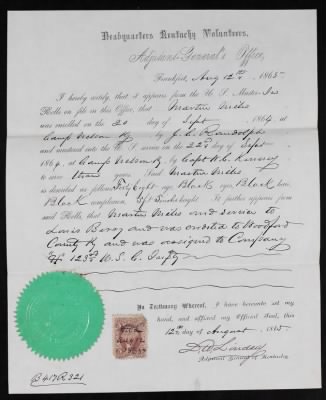 Headquarters Kentucky Volunteers,
Adjutant-General's Office,
Frankfort, Aug 12th, 1865
I hereby certify, that it appears from the U. S. Muster-In
Rolls on file in this Office, that Martin Mills
was enrolled on the 20 day of Sept 1864 at
Camp Nelson Ky by J. C. Randolph
and mustered into the U. S. service on the 22d day of Sept
1864, at Camp Nelson Ky by Capt
to serve three years. Said Martin Mills
is described as follows: eight age, Black eyes, Black hair,
Black complexion, height. It further appears from
said Rolls, that Martin Mills owed service to
and was credited to Woodford
County Ky and was assigned to Company
123d U. S. C. Infty
In Testimony Whereof, I have hereunto set my
hand, and affixed my Official Seal, this
12th day of August, 1865.
D. W. Lindsey
Adjutant General of Kentucky.
B417R321